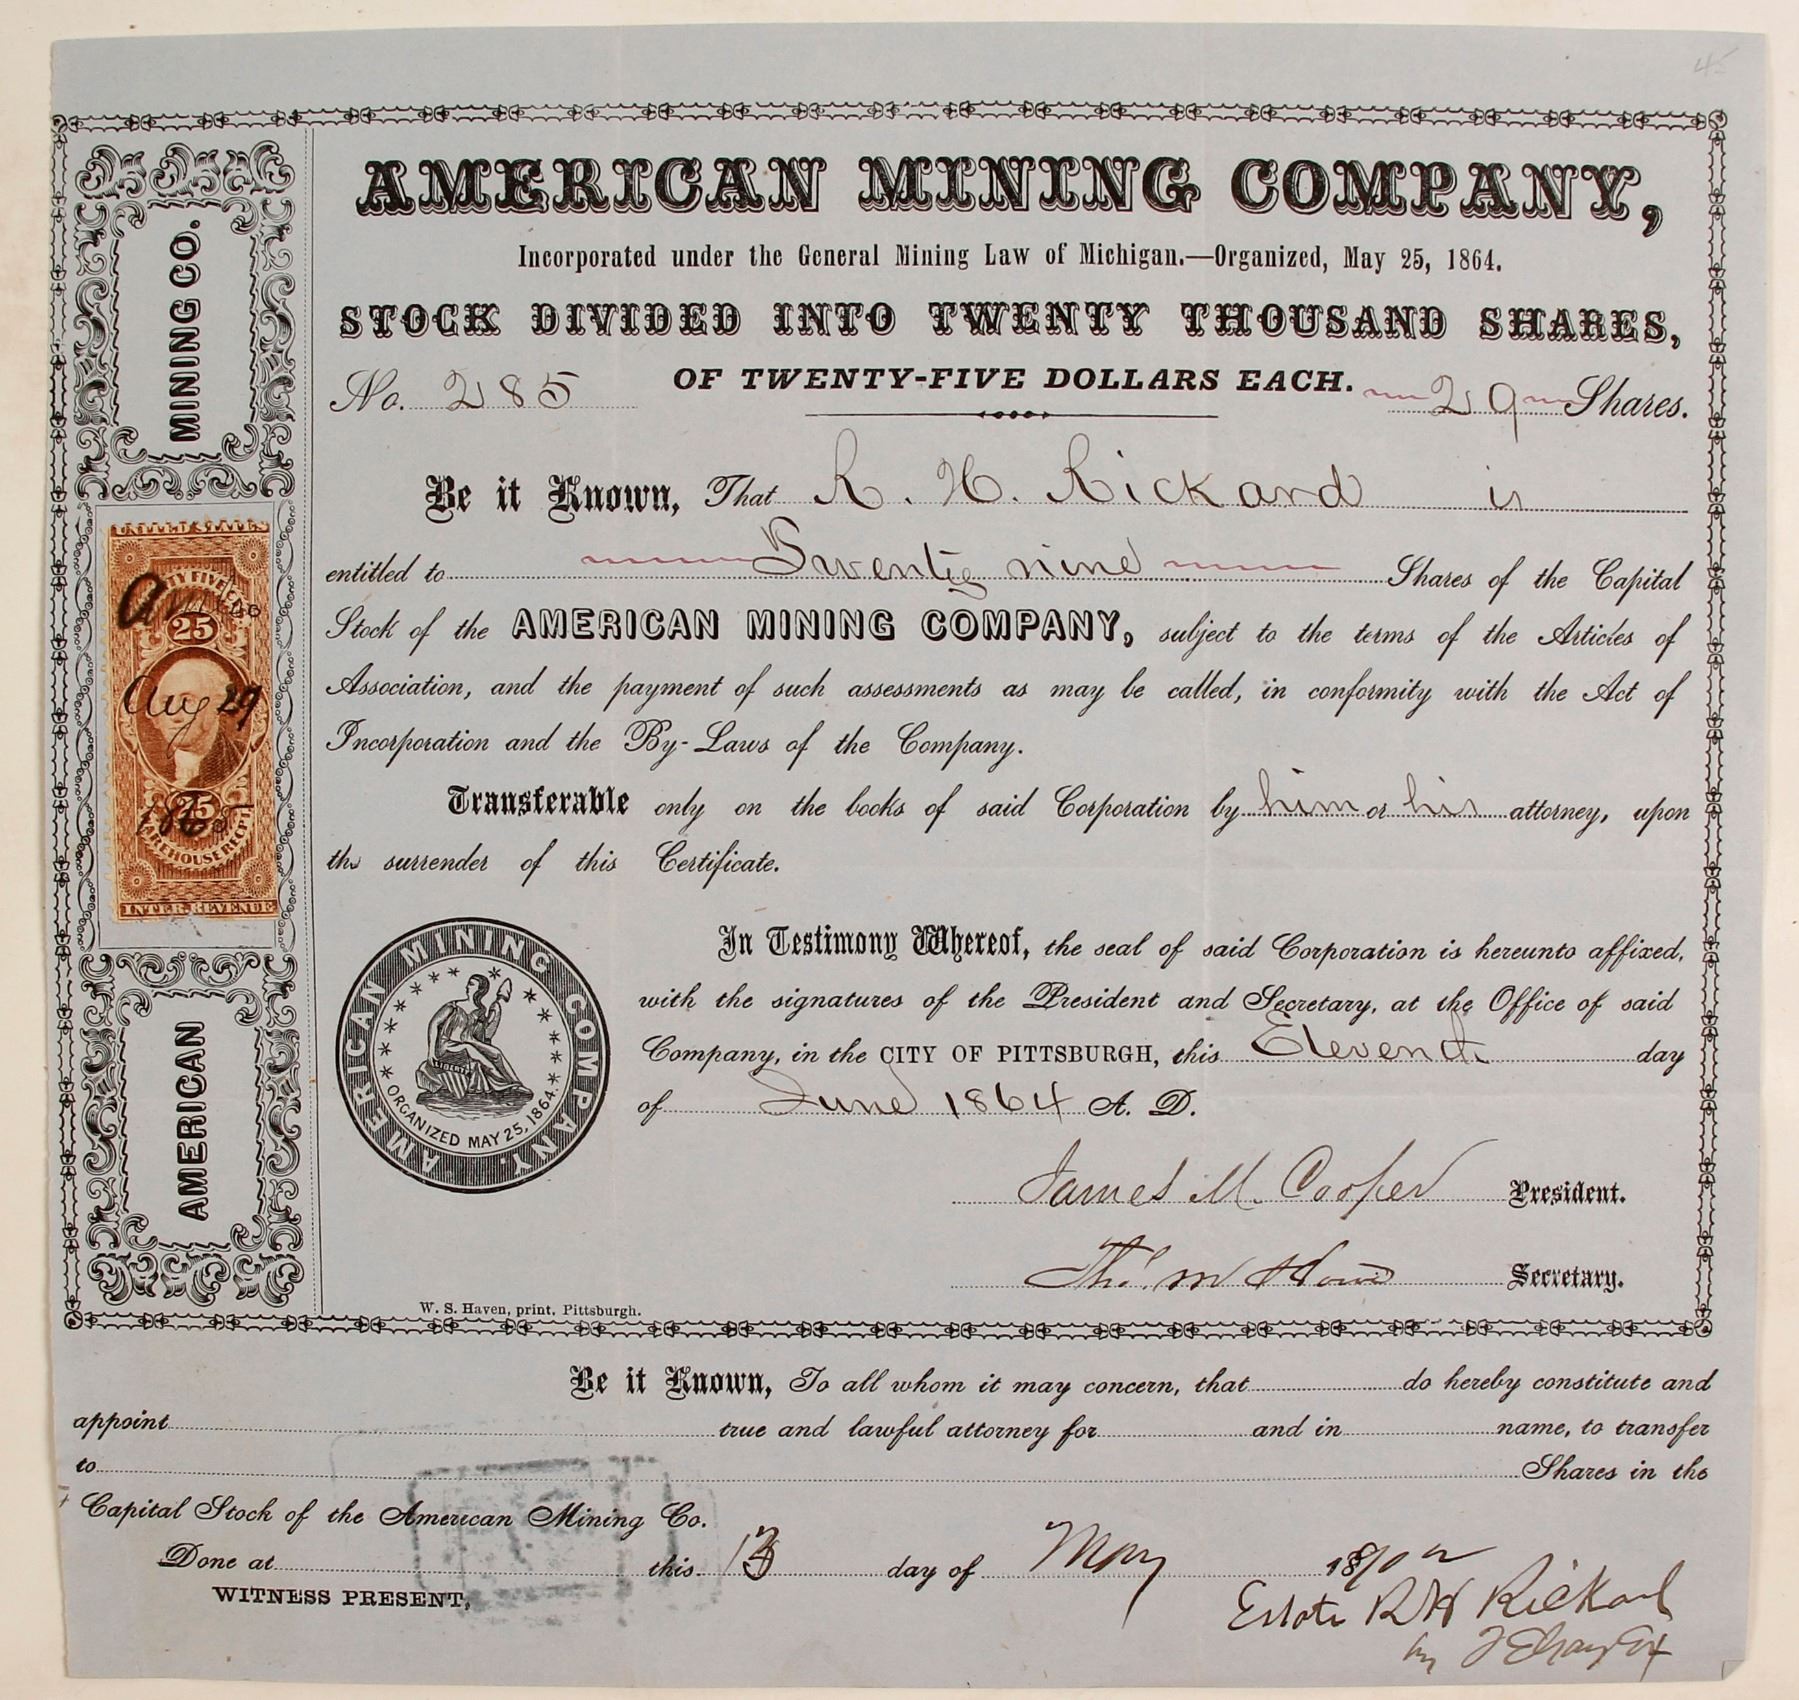 45
AMERICAN MINING COMPANY,
Incorporated under the General Mining Law of Michigan.—Organized, May 25, 1864.
STOCK DIVIDED INTO TWENTY THOUSAND SHARES,
OF TWENTY-FIVE DOLLARS EACH.
No. 285
29 Shares.
Be it Known, That R. H. Rickard is
entitled to Twenty nine Shares of the Capital
Stock of the AMERICAN MINING COMPANY, subject to the terms of the Articles of
Association, and the payment of such assessments as may be called, in conformity with the Act of
Incorporation and the By-Laws of the Company.
Transferable only on the books of said Corporation by him or his attorney, upon
the surrender of this Certificate.
In Testimony Whereof, the seal of said Corporation is hereunto affixed,
with the signatures of the President and Secretary, at the Office of said
Company, in the CITY OF PITTSBURGH, this Eleventh day
of June 1864 A. D.
James M. Cooper President.
Thos. M Howe Secretary.
AMERICAN MINING COMPANY.
LIBERTY
ORGANIZED MAY 25, 1864.
W. S. Haven, print, Pittsburgh.
AMERICAN MINING CO.
UNITED STATES
25
Aug 29
1865
25
WAREHOUSE REC'PT
INTER. REVENUE
Be it Known, To all whom it may concern, that do hereby constitute and
appoint true and lawful attorney for and in name, to transfer
to Shares in the
Capital Stock of the American Mining Co.
Done at this 13 day of May
WITNESS PRESENT,
Estate R H Rickard